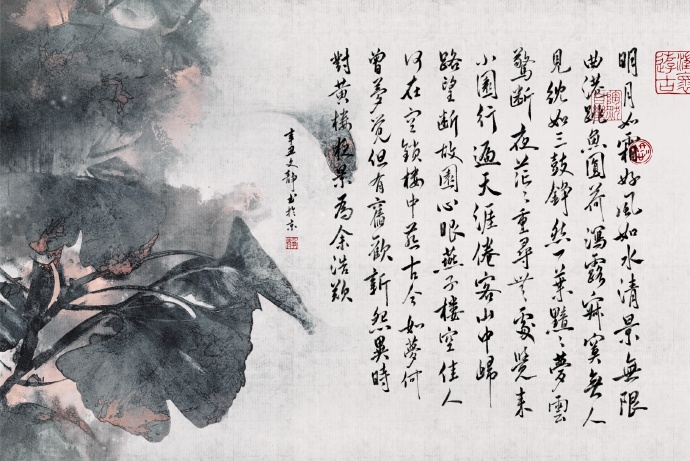 明月如霜好風如水清景無限
曲港跳魚圓荷瀉露寂寞無人
見紞如三鼓錚然一葉黯〻夢雲
驚斷夜茫〻重尋無處覺來
小園行遍天涯倦客山中歸
路望斷故園心眼燕子樓空佳人
何在空鎖樓中燕古今如夢何
曾夢覺但有舊歡新怨異時
對黃樓夜景為余浩歎
辛丑文靜書於京